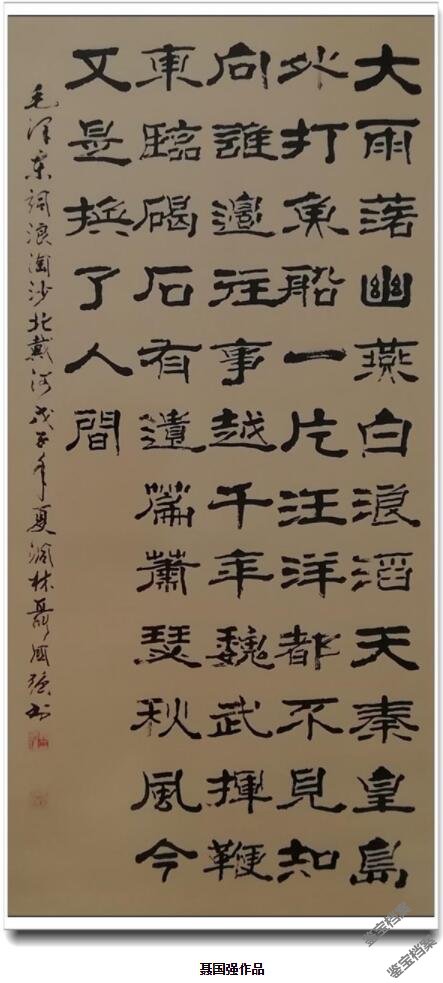 大雨落幽燕白浪滔天秦皇島
外打魚船一片汪洋都不見知
向誰邊往事越千年魏武揮鞭
東臨碣石有遺篇蕭瑟秋風今
又是換了人間
毛澤東詞浪淘沙北戴河戊子年夏林聶國強书
聂国强作品
鉴宝档案
鉴宝档案